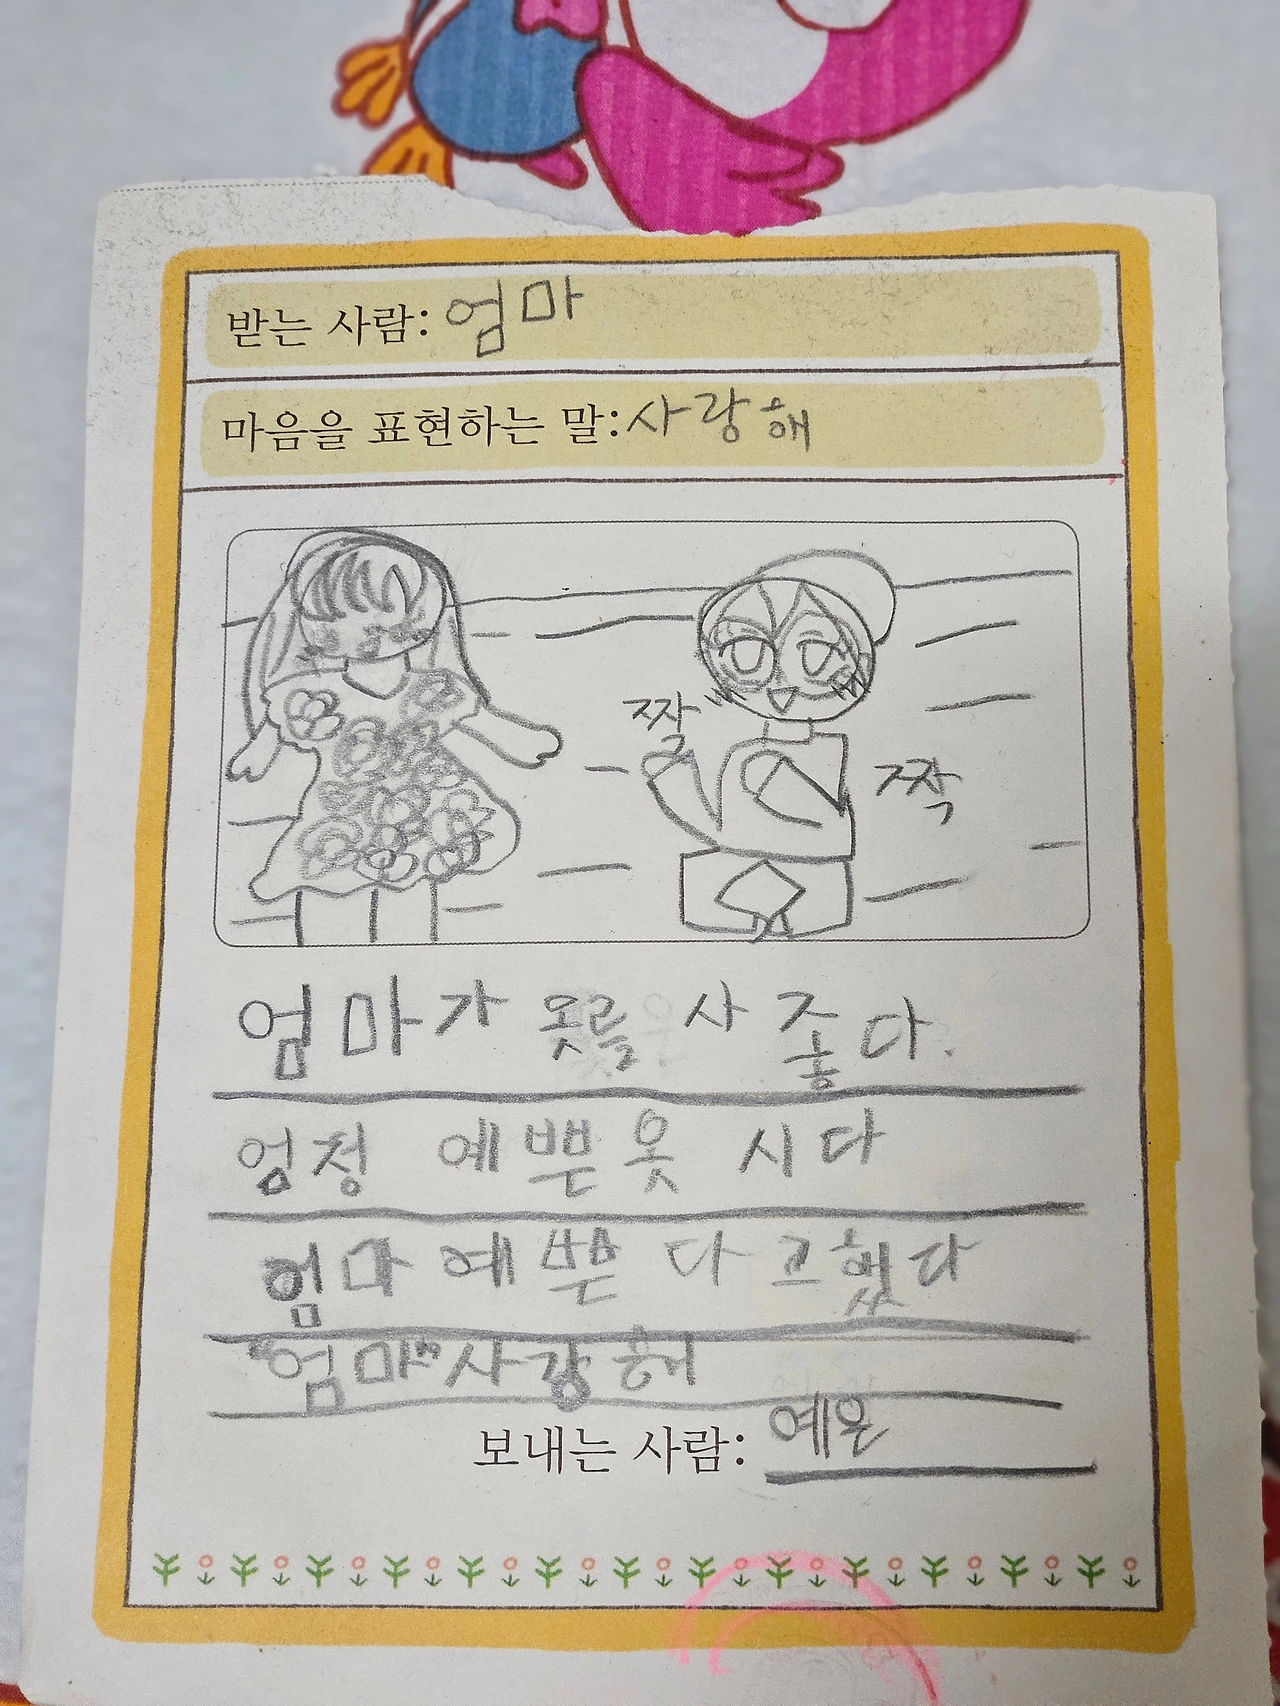 받는 사람: 엄마
마음을 표현하는 말: 사랑해
짤
짝
엄마가 옷를 사 좋다.
엄청 예쁜 옷 시다
엄마 예쁜 다 고했다
"엄마" 사랑해
보내는 사람: 예은